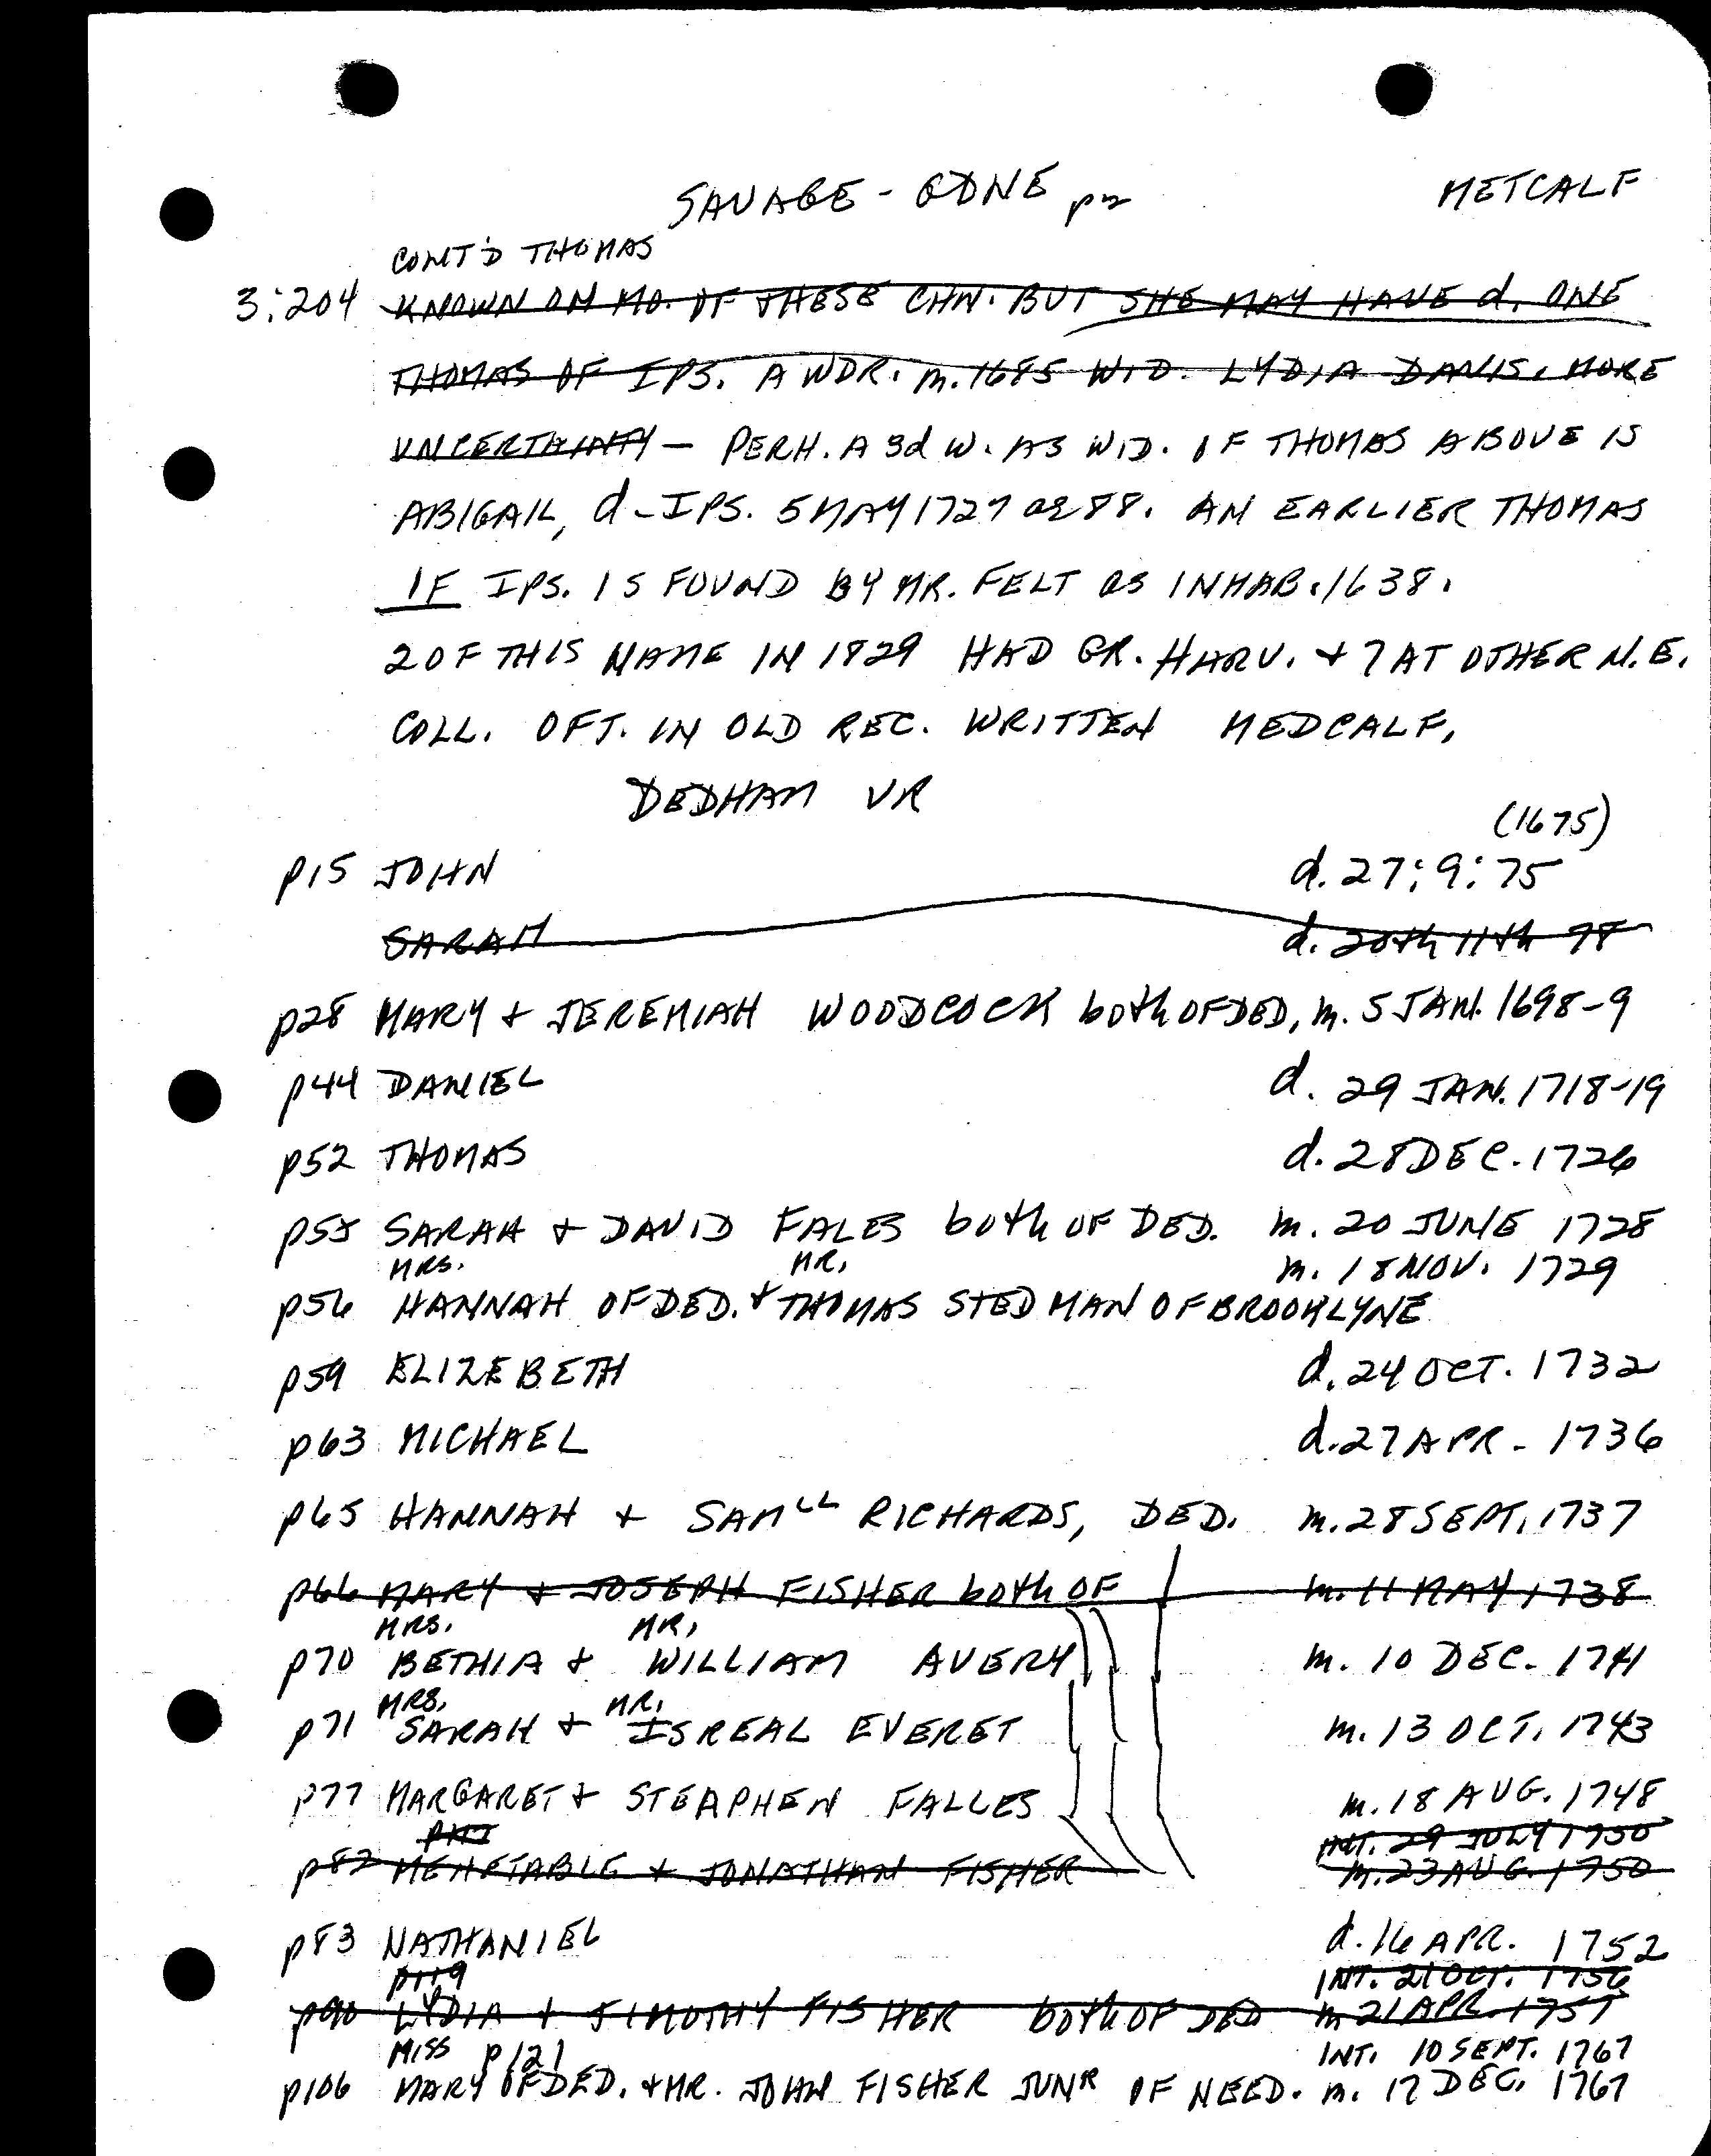 SAVAGE - GDNE p2 METCALF
CONT'D THOMAS
3:204 KNOWN ON MO. OF THESE CHN. BUT SHE MAY HAVE d. ONE
THOMAS OF IPS. A WDR. m. 1685 WID. LYDIA DAVIS. MORE
UNCERTAINTY — PERH. A 3d W. AS WID. OF THOMAS ABOVE IS
ABIGAIL, d - IPS. 5 MAY 1727 ae 88. AN EARLIER THOMAS
OF IPS. IS FOUND BY MR. FELT as INHAB. 1638.
2 OF THIS NAME IN 1829 HAD GR. HARV. + 7 AT OTHER N.E.
COLL. OFT. IN OLD REC. WRITTEN MEDCALF.
DEDHAM VR
(1675)
p15 JOHN d. 27:9:75
SARAH d. 20th 11th 78
p28 MARY + JEREMIAH WOODCOCK both OF DED, m. 5 JAN. 1698-9
p44 DANIEL d. 29 JAN. 1718-19
p52 THOMAS d. 28 DEC. 1726
p55 SARAH + DAVID FALES both OF DED. m. 20 JUNE 1728
MRS. MR. m. 18 NOV. 1729
p56 HANNAH OF DED. + THOMAS STEDMAN OF BROOKLYNE
p59 ELIZEBETH d. 24 OCT. 1732
p63 MICHAEL d. 27 APR - 1736
p65 HANNAH + SAMLL RICHARDS, DED. m. 28 SEPT. 1737
p66 MARY + JOSEPH FISHER both OF m. 11 MAY 1738
MRS. MR.
p70 BETHIA + WILLIAM AVERY m. 10 DEC. 1741
MRS. MR.
p71 SARAH + ISREAL EVERET m. 13 OCT. 1743
p77 MARGARET + STEAPHEN FALLES m. 18 AUG. 1748
INT. 29 JULY 1750
p82 MEHETABLE + JONATHAN FISHER m. 23 AUG. 1750
p83 NATHANIEL d. 16 APR. 1752
p119 INT. 21 OCT. 1756
p90 LYDIA + TIMOTHY FISHER both OF DED m 21 APR. 1757
MISS p121 INT. 10 SEPT. 1767
p106 MARY OF DED. + MR. JOHN FISHER JUNR OF NEED. m. 17 DEC. 1767